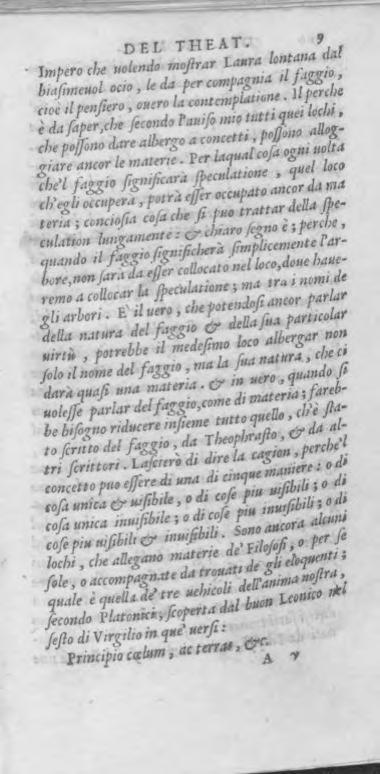 DEL THEAT. 9
Impero che uolendo mostrar Laura lontana dal
biasimeuol ocio, le da per compagnia il faggio,
cioè il pensiero, ouero la contemplatione. Il perche
è da saper, che secondo l'auiso mio tutti quei lochi,
che possono dare albergo a concetti, possono allog-
giare ancor le materie. Per laqual cosa ogni uolta
che'l faggio significarà speculatione, quel loco
ch'egli occuperà, potrà esser occupato ancor da ma
teria; conciosia cosa che si puo trattar della spe-
culation lungamente: & chiaro segno è; perche,
quando il faggio significherà simplicemente l'ar-
bore, non sarà da esser collocato nel loco, doue haue-
remo a collocar la speculatione; ma tra i nomi de
gli arbori. E il uero, che potendosi ancor parlar
della natura del faggio & della sua particolar
uirtù, potrebbe il medesimo loco albergar non
solo il nome del faggio, ma la sua natura, che ci
darà quasi una materia. & in uero, quando si
uolesse parlar del faggio, come di materia; fareb-
be bisogno riducere insieme tutto quello, ch'è sta-
to scritto del faggio, da Theophrasto, & da al-
tri scrittori. Lascierò di dire la cagion, perche'l
concetto puo essere di una di cinque maniere: o di
cosa unica & uisibile, o di cose piu uisibili; o di
cosa unica inuisibile; o di cose piu inuisibili; o di
cose piu uisibili & inuisibili. Sono ancora alcuni
lochi, che allegano materie de' Filosofi, o per se
sole, o accompagnate da trouati de gli eloquenti;
quale è quella de' tre uehicoli dell'anima nostra,
secondo Platonici, scoperta dal buon Leonico nel
sesto di Virgilio in que' uersi:
Principio cœlum, ac terras, &c.
A v